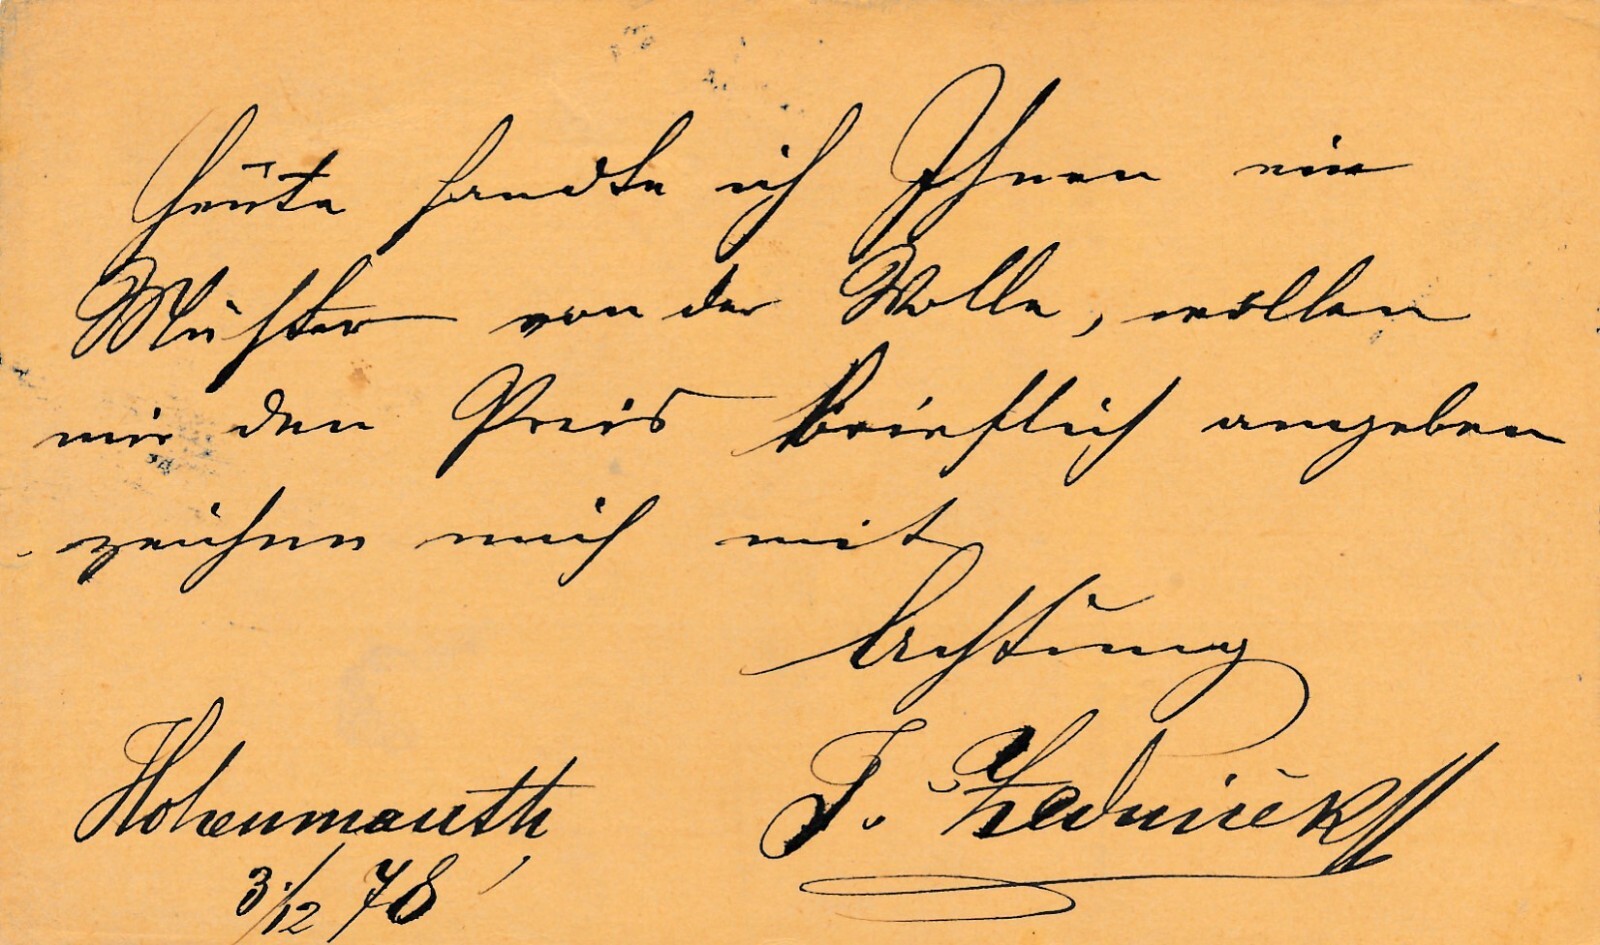 Heute sandte ich Ihnen ein
Muster von der Wolle, wollen
mir den Preis brieflich angeben
zeichne mich mit
Achtung
Hohenmauth
3/12 78
J.